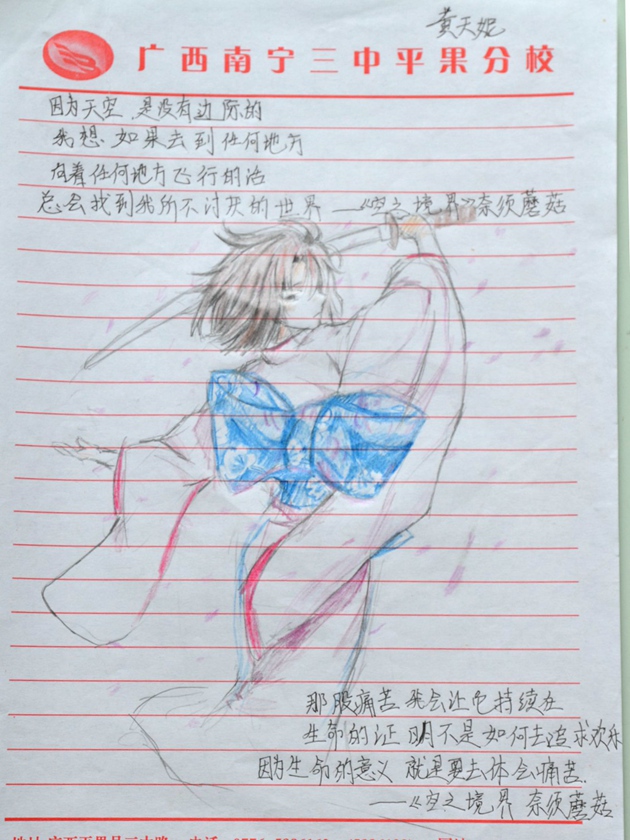 黄天妮
广西南宁三中平果分校
因为天空是没有边际的
我想如果去到任何地方
向着任何地方飞行的话
总会找到我所不讨厌的世界 ——《空之境界》奈须蘑菇
那股痛苦我会让它持续在
生命的证明不是如何去追求欢乐
因为生命的意义就是要去体会痛苦.
——《空之境界 奈须蘑菇